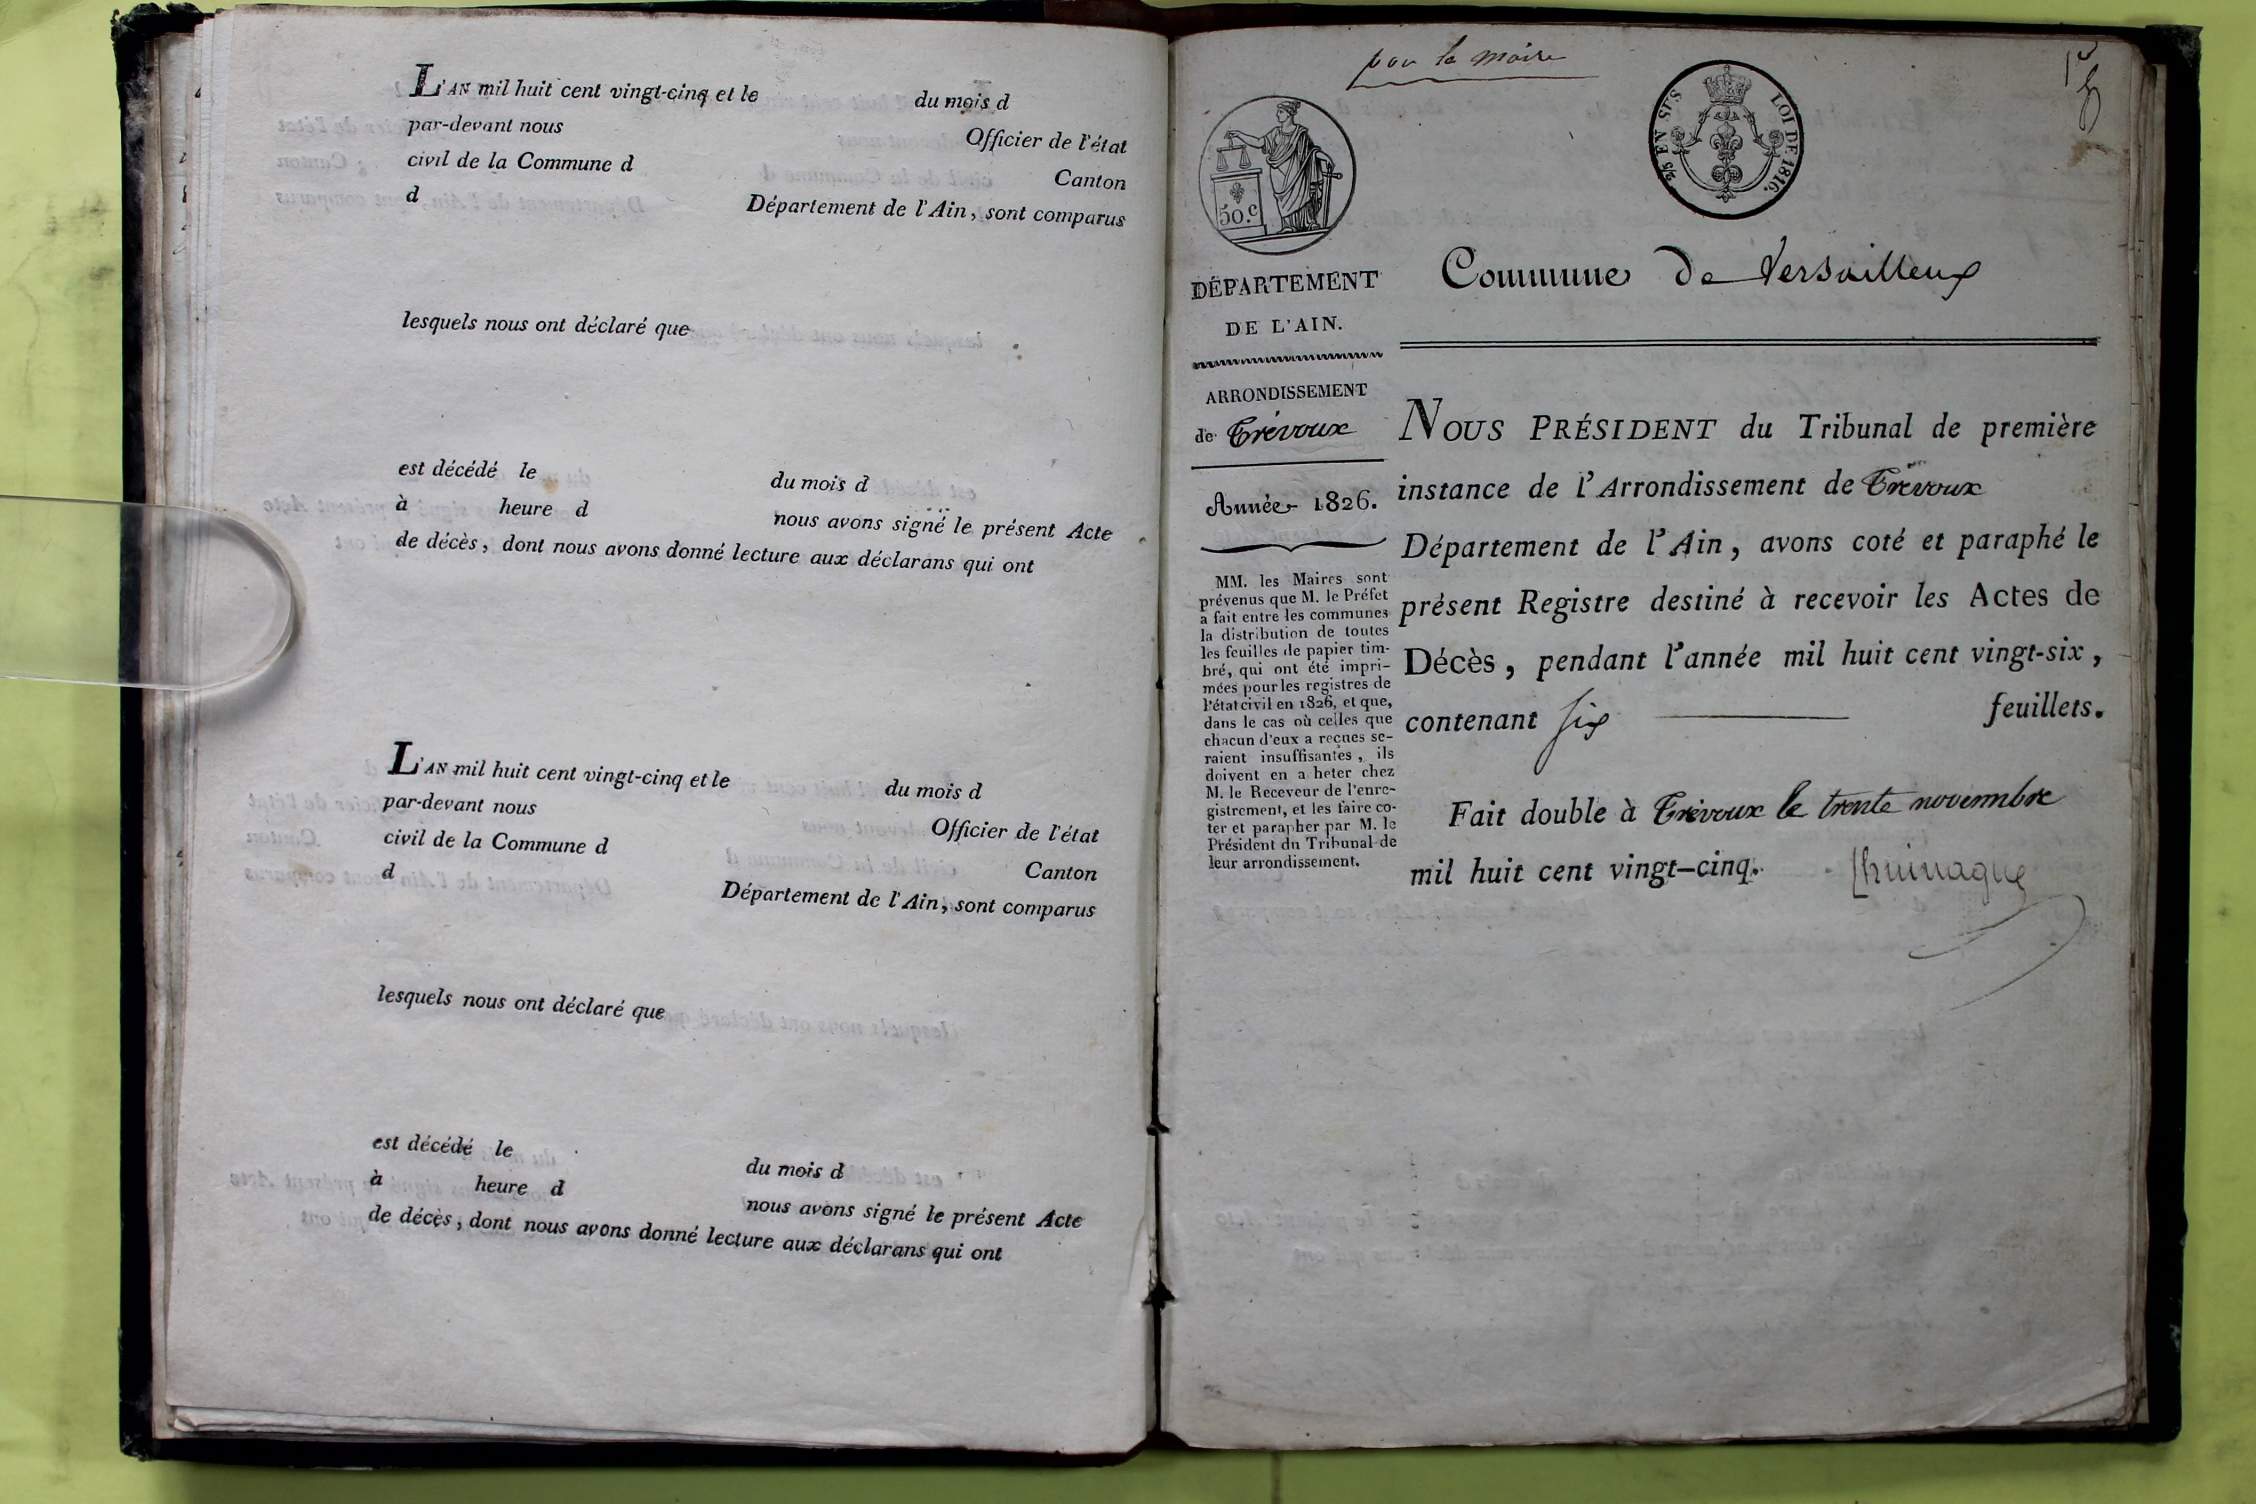 L'AN mil huit cent vingt-cinq et le du mois d
par-devant nous Officier de l'état
civil de la Commune d Canton
d Département de l'Ain, sont comparus
lesquels nous ont déclaré que
est décédé le du mois d
à heure d nous avons signé le présent Acte
de décès, dont nous avons donné lecture aux déclarans qui ont
L'AN mil huit cent vingt-cinq et le du mois d
par-devant nous Officier de l'état
civil de la Commune d Canton
d Département de l'Ain, sont comparus
lesquels nous ont déclaré que
est décédé le du mois d
à heure d nous avons signé le présent Acte
de décès, dont nous avons donné lecture aux déclarans qui ont
pour la mairie
50.c
2/5 EN SUS
LOI DE 1816.
DÉPARTEMENT
DE L'AIN.
ARRONDISSEMENT
de Trévoux
Année 1826.
MM. les Maires sont
prévenus que M. le Préfet
a fait entre les communes
la distribution de toutes
les feuilles de papier tim-
bré, qui ont été impri-
mées pour les registres de
l'état civil en 1826, et que,
dans le cas où celles que
chacun d'eux a reçues se-
raient insuffisantes, ils
doivent en a heter chez
M. le Receveur de l'enre-
gistrement, et les faire co-
ter et parapher par M. le
Président du Tribunal de
leur arrondissement.
Commune de Versailleux
NOUS PRÉSIDENT du Tribunal de première
instance de l'Arrondissement de Trévoux
Département de l'Ain, avons coté et paraphé le
présent Registre destiné à recevoir les Actes de
Décès, pendant l'année mil huit cent vingt-six,
contenant six feuillets.
Fait double à Trévoux le trente novembre
mil huit cent vingt-cinq.